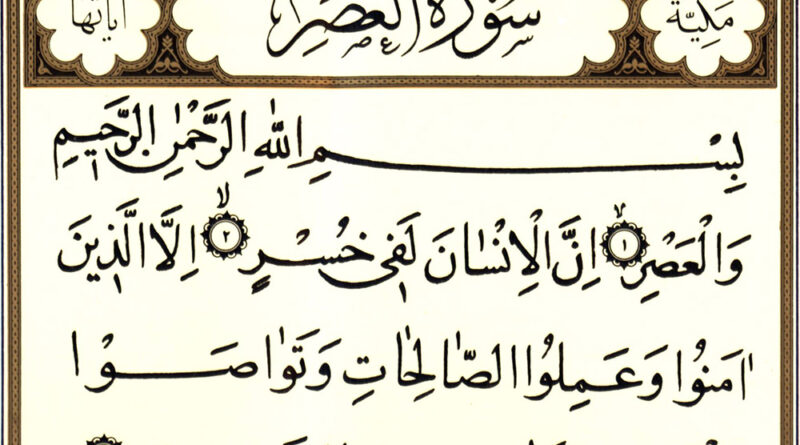 مَكِّيَّة سُورَةُ الْعَصْرِ آيَاتُهَا
بِسْمِ اللهِ الرَّحْمٰنِ الرَّحِيمِ
وَالْعَصْرِ ١ اِنَّ الْاِنْسَانَ لَفِى خُسْرٍ ٢ اِلَّا الَّذِينَ
اٰمَنُوا وَعَمِلُوا الصَّالِحَاتِ وَتَوَاصَوْا